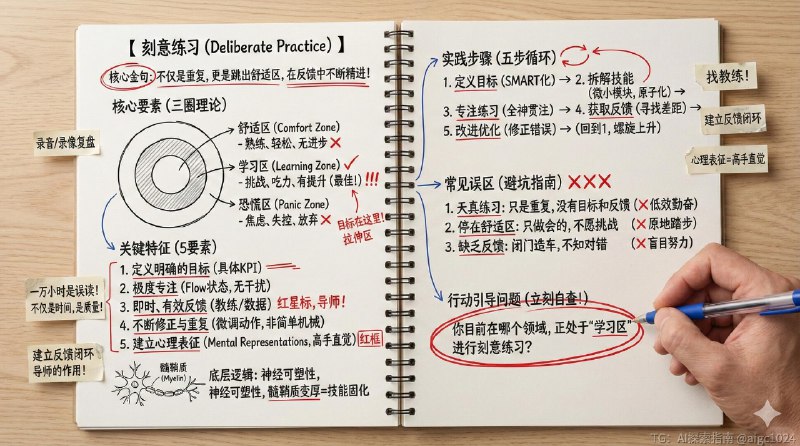 【 刻意练习 (Deliberate Practice) 】
核心金句: 不仅是重复, 更是跳出舒适区, 在反馈中不断精进!
核心要素 (三圈理论)
舒适区 (Comfort Zone)
– 熟练、轻松、无进步 ×
学习区 (Learning Zone) ✓
– 挑战、吃力、有提升 (最佳!) !!!
恐慌区 (Panic Zone)
– 焦虑、失控、放弃 ×
目标在这里!
拉伸区
关键特征 (5要素)
1. 定义明确的目标 (具体KPI)
2. 极度专注 (Flow状态, 无干扰)
3. 即时、有效反馈 (教练/数据) 红星标, 导师!
4. 不断修正与重复 (微调动作, 非简单机械)
5. 建立心理表征 (Mental Representations, 高手直觉) 红框
髓鞘质
(Myelin)
底层逻辑: 神经可塑性,
神经可塑性, 髓鞘质变厚=技能固化
录音/录像复盘
一万小时是误读!
不仅是时间, 是质量!
建立反馈闭环
导师的作用!
实践步骤 (五步循环)
1. 定义目标 (SMART化) → 2. 拆解技能
(微小模块, 原子化) →
3. 专注练习 (全神贯注) → 4. 获取反馈 (寻找差距) →
5. 改进优化 (修正错误) → (回到1, 螺旋上升)
常见误区 (避坑指南) ×××
1. 天真练习: 只是重复, 没有目标和反馈 (×低效勤奋)
2. 停在舒适区: 只做会的, 不愿挑战 (×原地踏步)
3. 缺乏反馈: 闭门造车, 不知对错 (×盲目努力)
行动引导问题 (立刻自查!)
你目前在哪个领域, 正处于“学习区”
进行刻意练习?
找教练!
建立反馈闭环
心理表征=高手直觉
TG: AI探索指南 @aigc1024